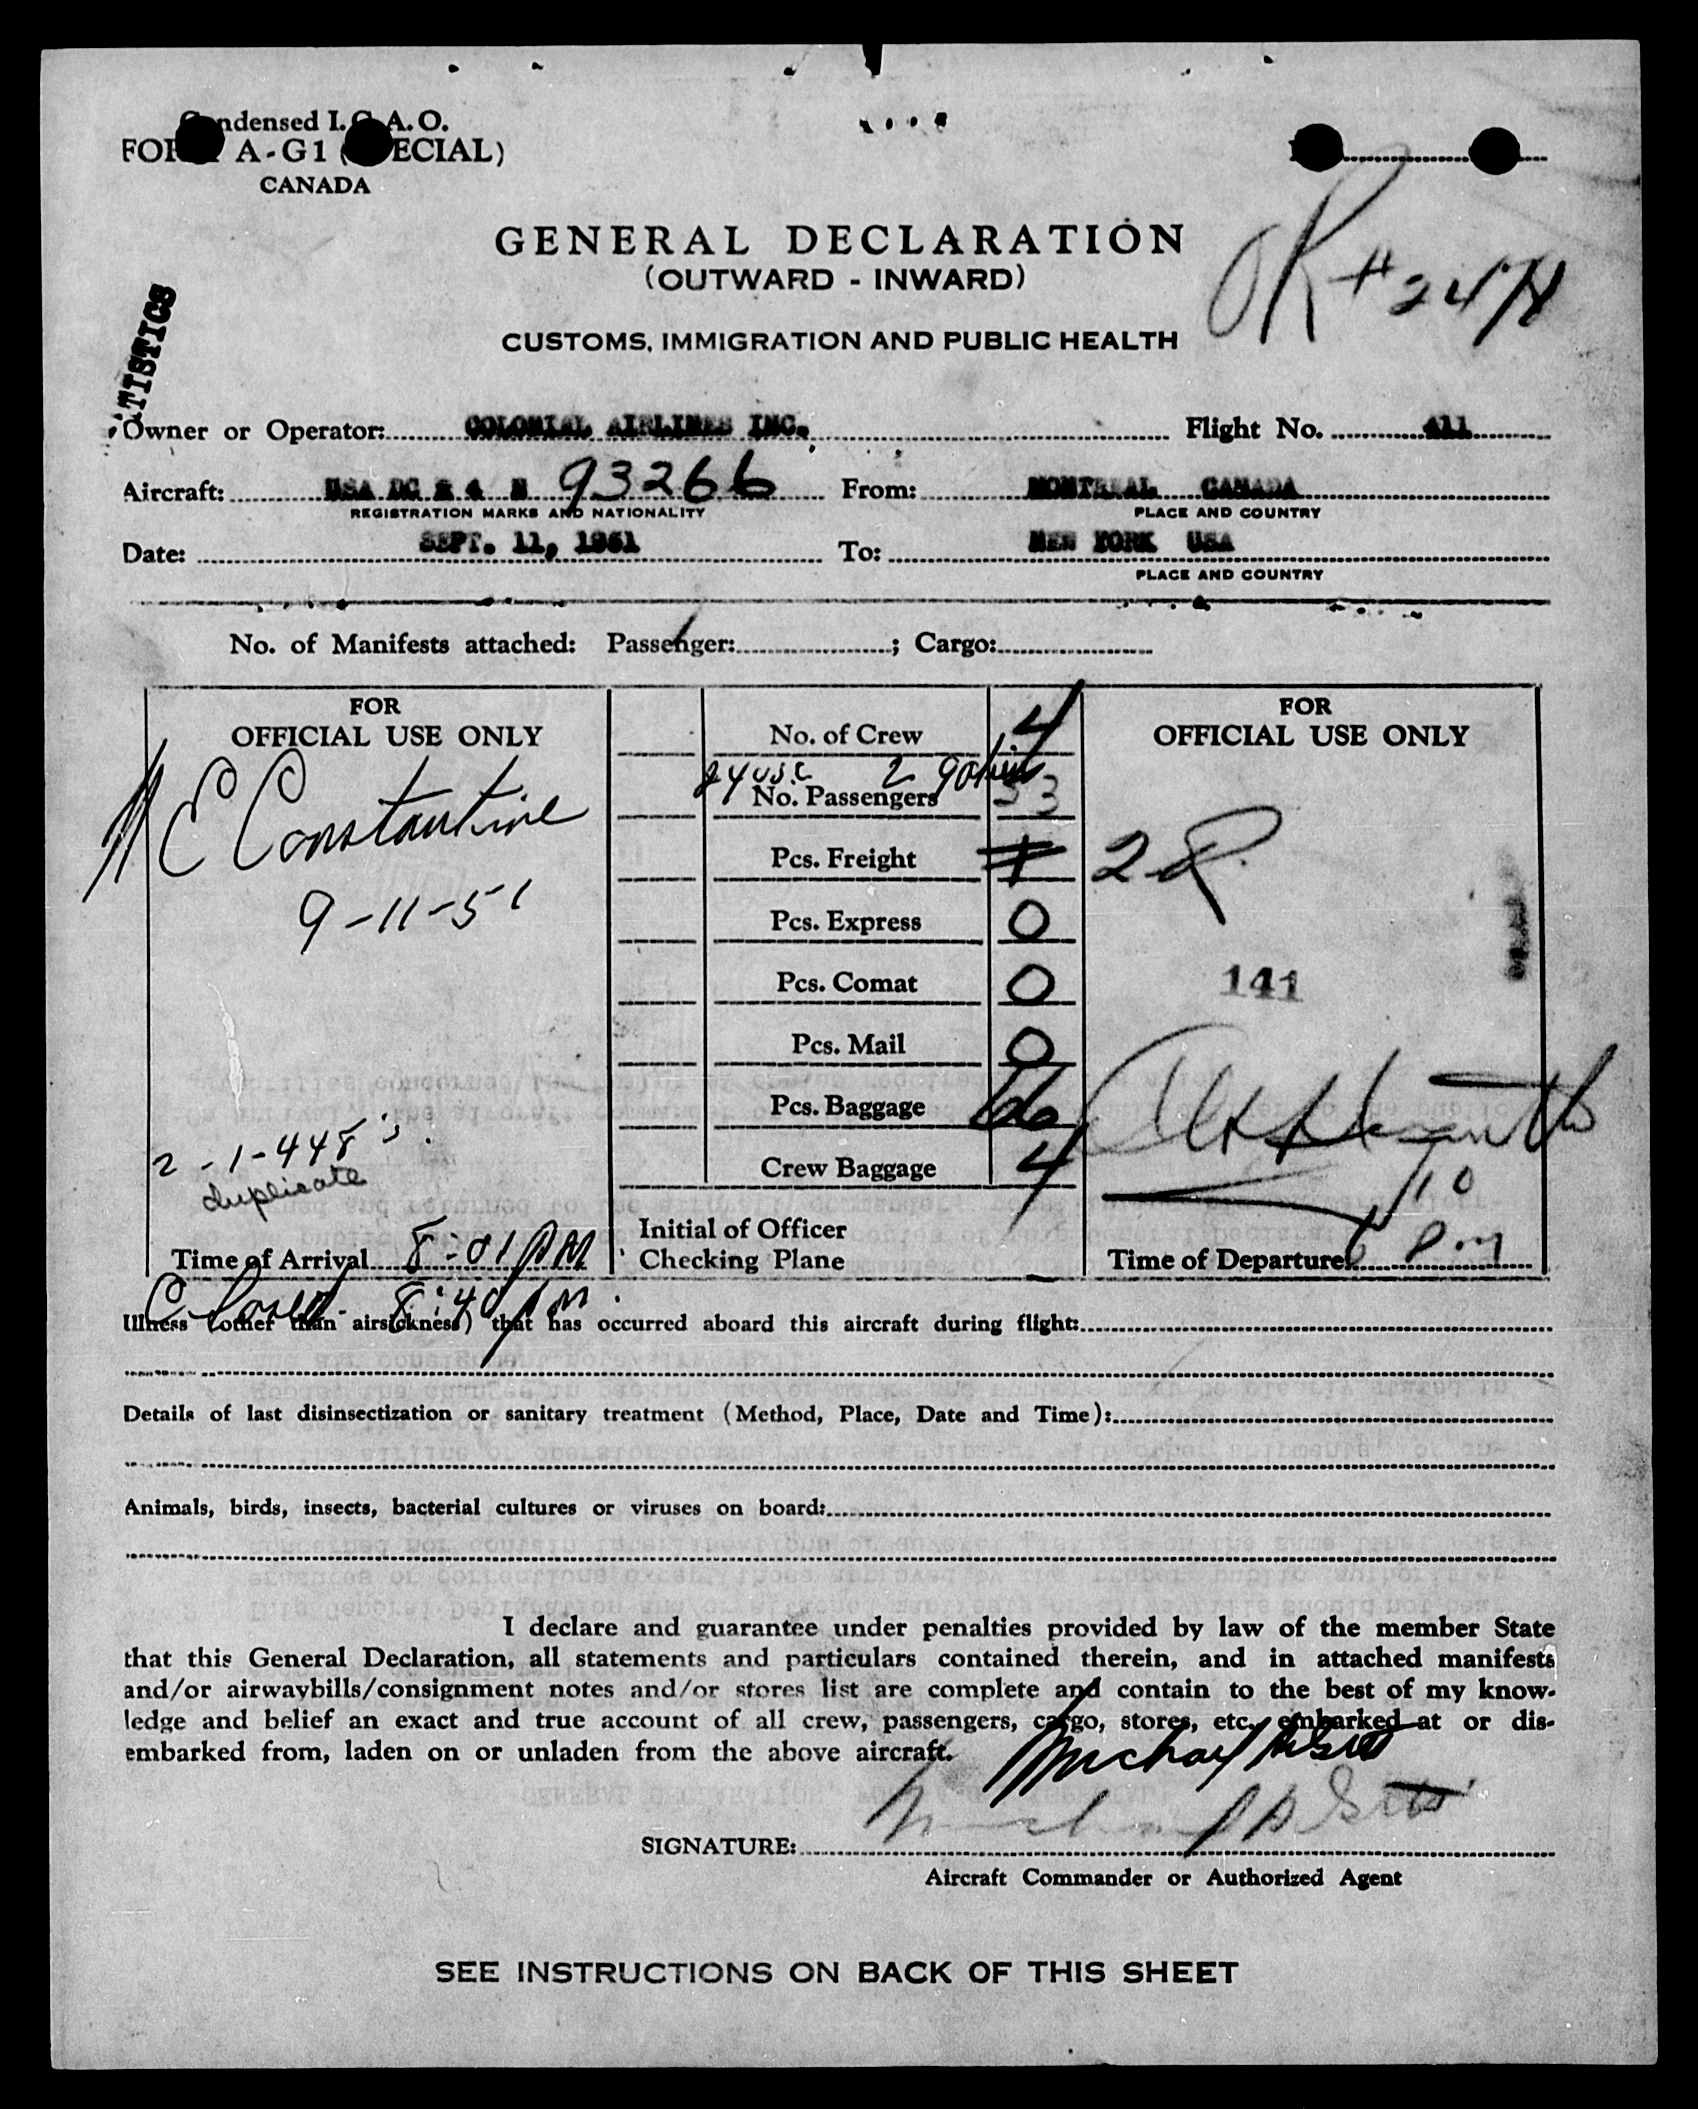 Condensed I.C.A.O.
FORM A-G1 (SPECIAL)
CANADA
OK # 24
GENERAL DECLARATION
(OUTWARD - INWARD)
CUSTOMS, IMMIGRATION AND PUBLIC HEALTH
TISTICS
Owner or Operator: COLONIAL AIRLINES INC. Flight No. 411
Aircraft: USA DC & 4 N 93266 From: MONTREAL CANADA
REGISTRATION MARKS AND NATIONALITY PLACE AND COUNTRY
Date: SEPT. 11, 1951 To: NEW YORK USA
PLACE AND COUNTRY
No. of Manifests attached: Passenger: ; Cargo:
FOR
OFFICIAL USE ONLY
C Constantine
9-11-51
2 -1-448's.
duplicate
Time of Arrival 8:01 PM
Closed 8:40 PM
No. of Crew 4
24 USC 2
No. Passengers 53
Pcs. Freight
Pcs. Express 0
Pcs. Comat 0
Pcs. Mail 0
Pcs. Baggage 66
Crew Baggage 4
Initial of Officer
Checking Plane
FOR
OFFICIAL USE ONLY
2
141
Time of Departure: P.M
Illness (other than airsickness) that has occurred aboard this aircraft during flight:
Details of last disinsectization or sanitary treatment (Method, Place, Date and Time):
Animals, birds, insects, bacterial cultures or viruses on board:
I declare and guarantee under penalties provided by law of the member State
that this General Declaration, all statements and particulars contained therein, and in attached manifests
and/or airwaybills/consignment notes and/or stores list are complete and contain to the best of my know-
ledge and belief an exact and true account of all crew, passengers, cargo, stores, etc. embarked at or dis-
embarked from, laden on or unladen from the above aircraft.
Michael
SIGNATURE:
Aircraft Commander or Authorized Agent
SEE INSTRUCTIONS ON BACK OF THIS SHEET